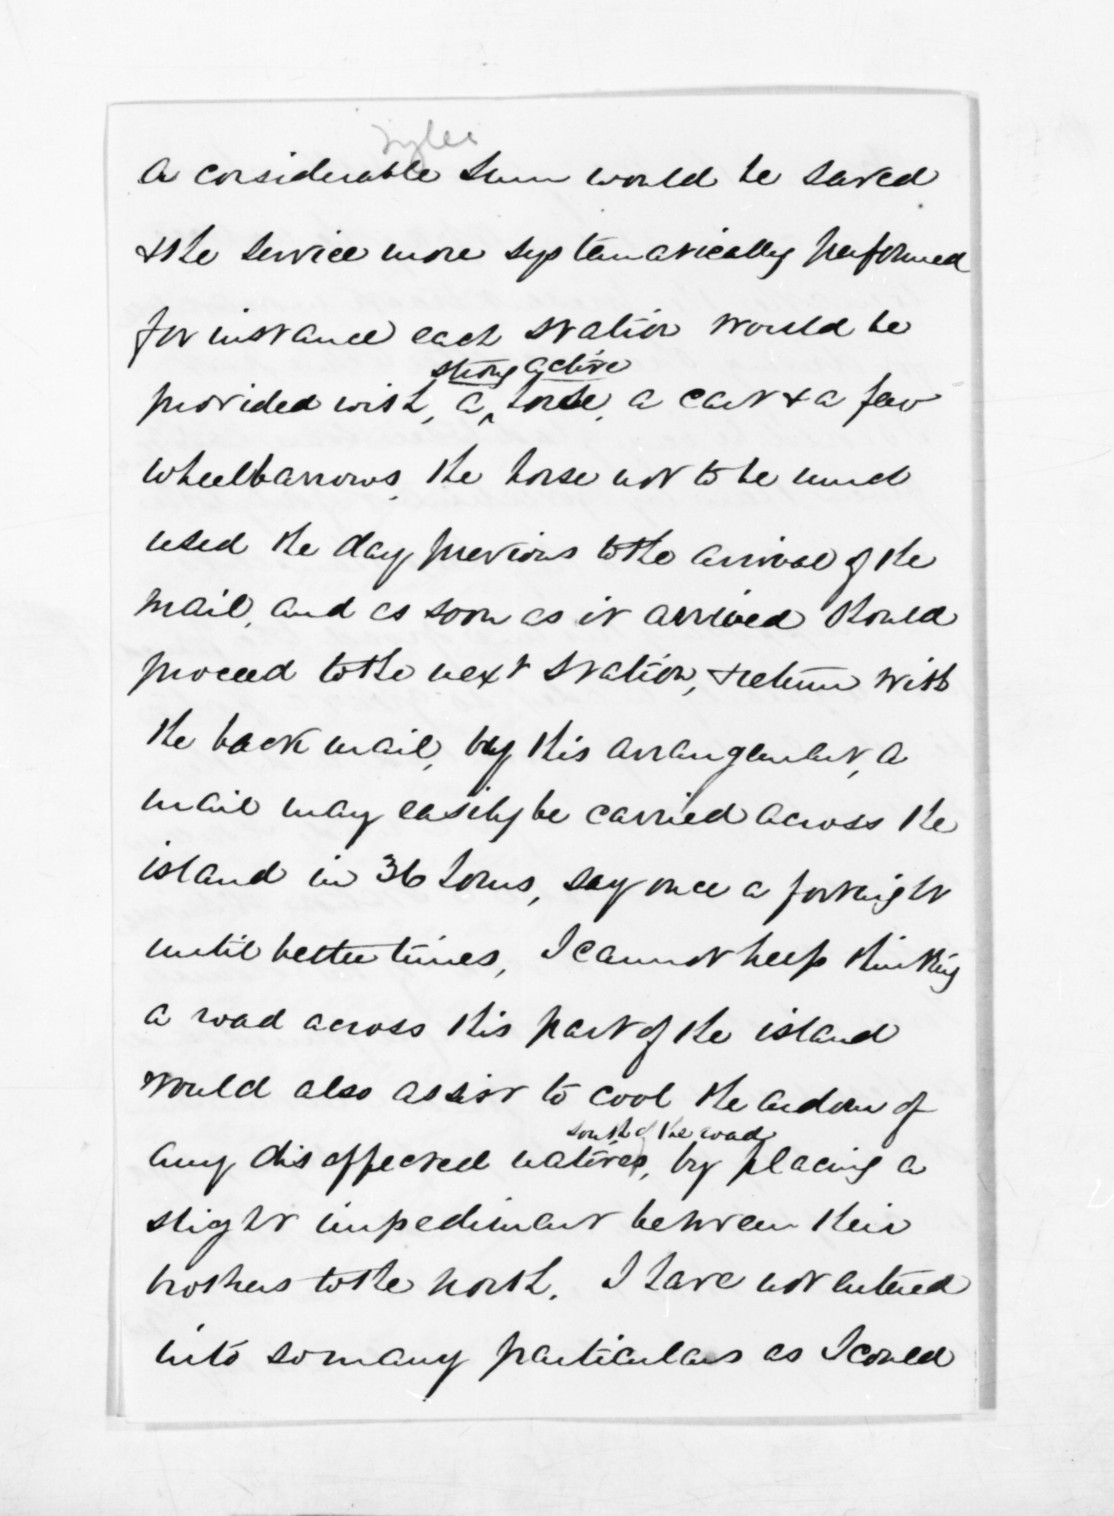 a considerable sum would be saved
& the service more systematically performed
for instance each station would be
strong active
provided with, a horse, a cart & a few
wheelbarrows, the horse not to be much
used the day previous to the arrival of the
mail, and as soon as it arrived should
proceed to the next station, & return with
the back mail, by this arrangement, a
mail may easily be carried across the
island in 36 hours, say once a fortnight
until better times, I cannot help thinking
a road across this part of the island
would also assist to cool the ardour of
south of the road
any disaffected natives, by placing a
slight impediment between their
brothers to the north. I have not entered
into so many particulars as I could